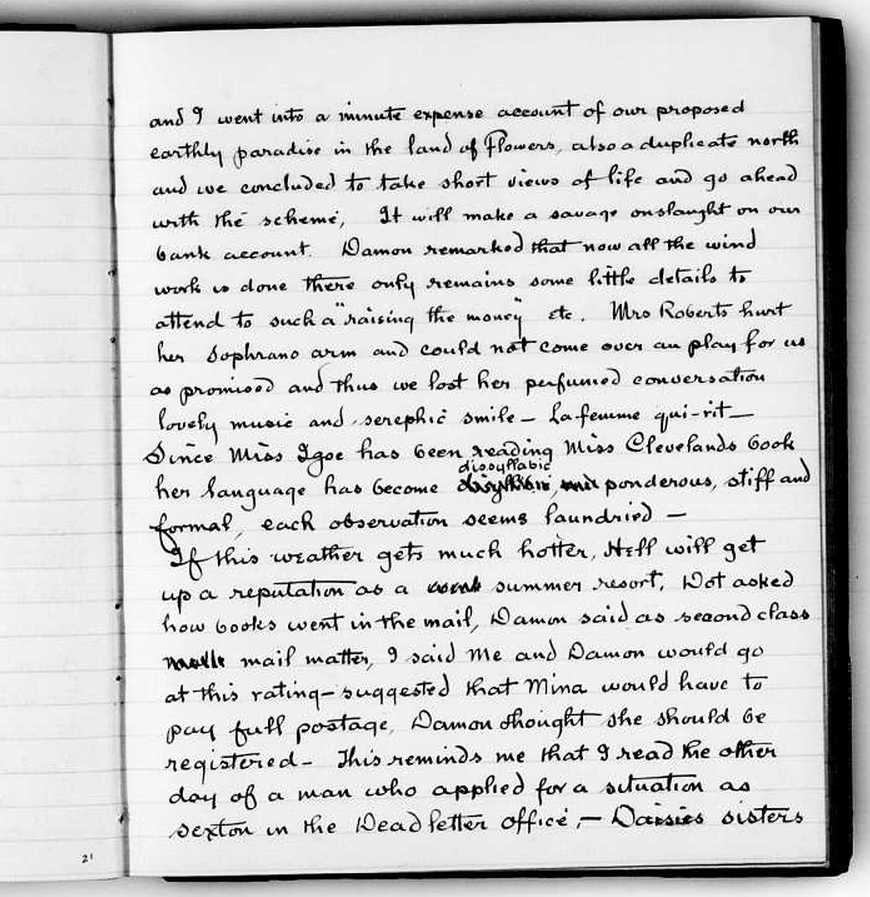 and I went into a minute expense account of our proposed
earthly paradise in the land of Flowers, also a duplicate north
and we concluded to take short views of life and go ahead
with the scheme, It will make a savage onslaught on our
bank account. Damon remarked that now all the wind
work is done there only remains some little details to
attend to such a "raising the money" etc. Mrs Roberts hurt
her Sophrano arm and could not come over an play for us
as promised and thus we lost her perfumed conversation
lovely music and serephic smile — La femme qui-rit —
Since Miss Igoe has been reading Miss Clevelands book
dissyllabic
her language has become ponderous, stiff and
formal, each observation seems laundried —
If this weather gets much hotter, Hell will get
up a reputation as a summer resort. Dot asked
how books went in the mail, Damon said as second class
mail matter, I said Me and Damon would go
at this rating — suggested that Mina would have to
pay full postage, Damon thought she should be
registered — This reminds me that I read the other
day of a man who applied for a situation as
sexton in the Dead letter office, — Daisies sisters
21